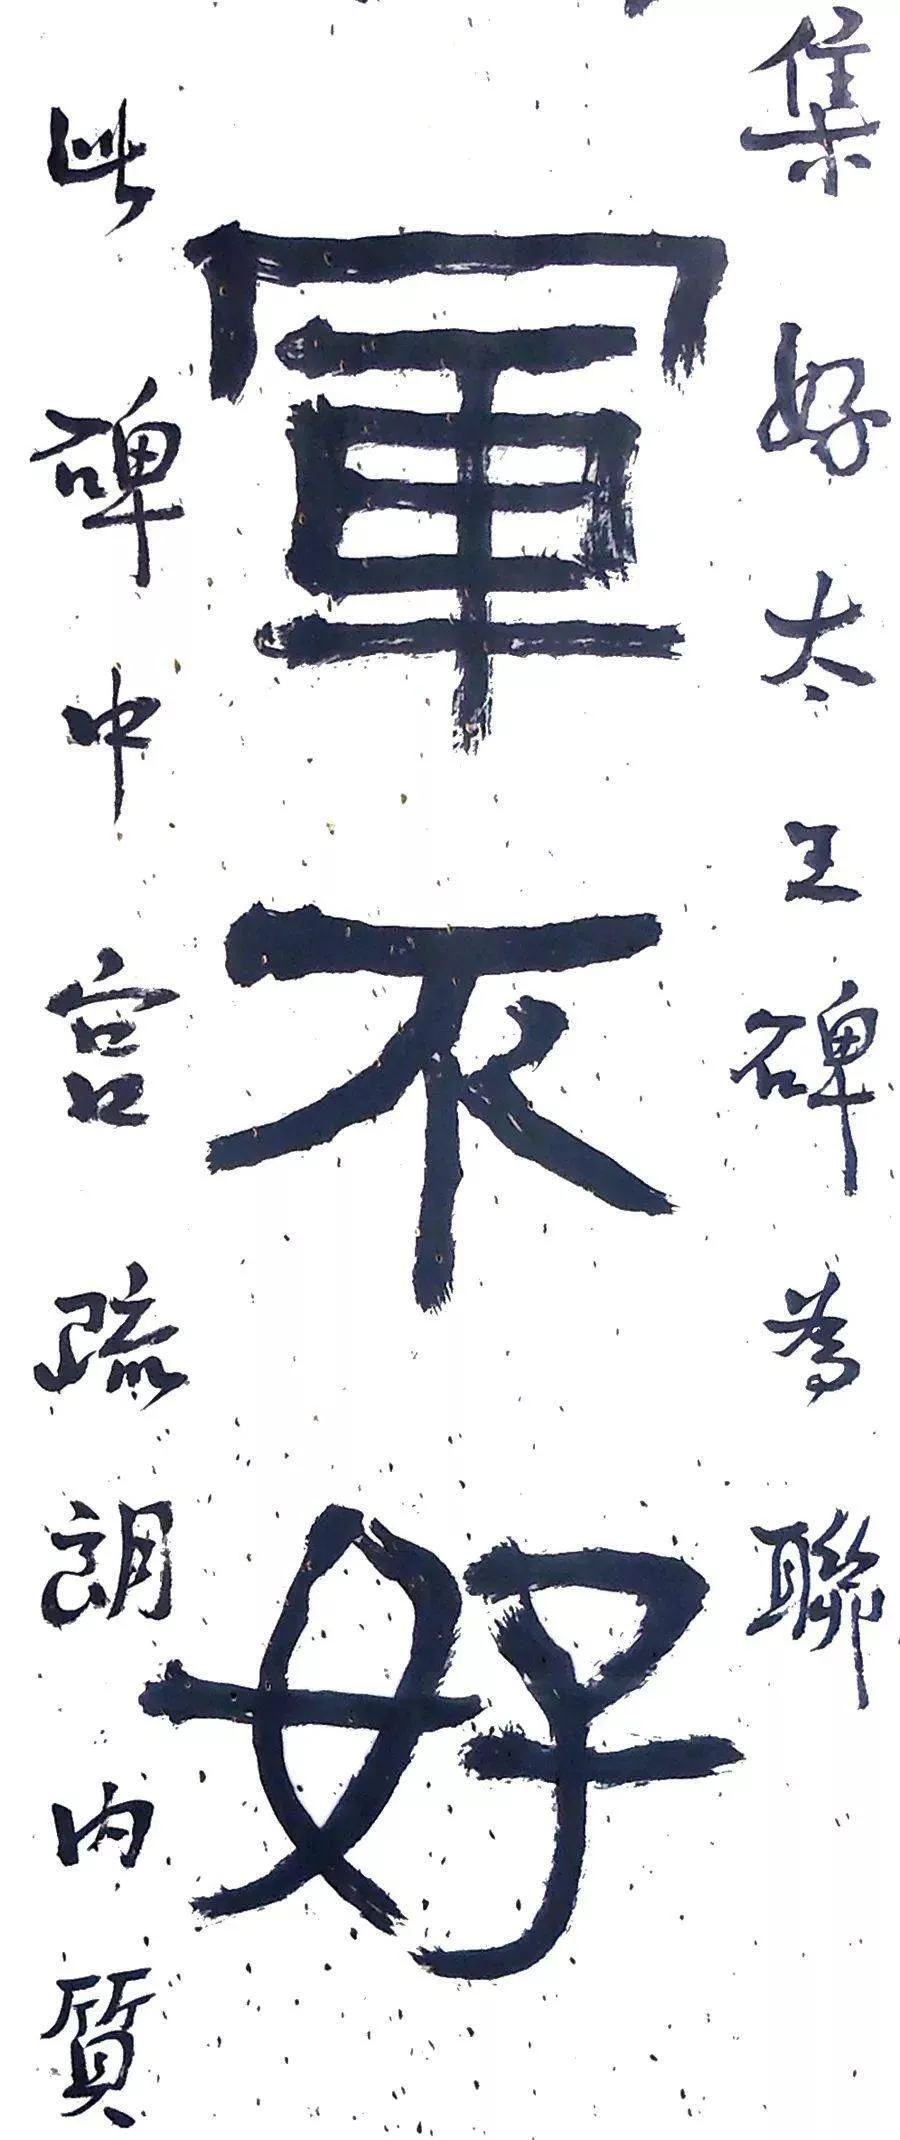 集好太王碑為聯
軍不好
此碑中宮疏朗內質